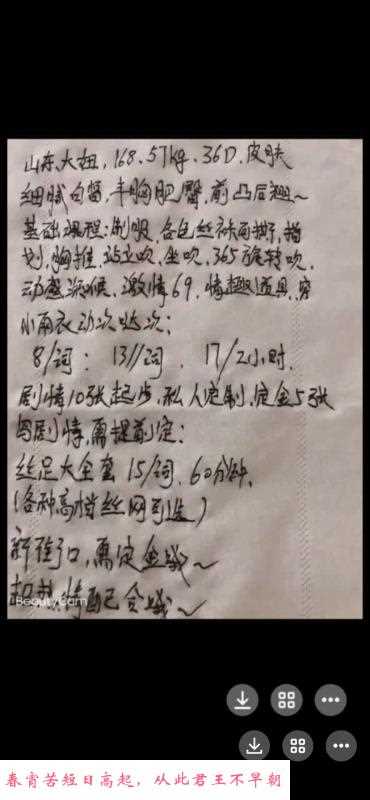 山东大妞,168.57kg.36D.皮肤
细腻白皙,丰胸肥臀,前凸后翘~
基础课程:制服,各色丝袜可撕,指
划,胸推.站立吹.坐吹,365旋转吹,
动感深喉、激情69、情趣道具,穿
小雨衣动次哒次;
8/词: 13//词、17/2小时.
剧情10张起步,私人定制,定金5张
写剧情,需提前定:
丝足大全套 15/词、60分钟,
(各种高档丝网可选)
新街口,需定金哦~
BeautyCam
春宵苦短日高起,从此君王不早朝